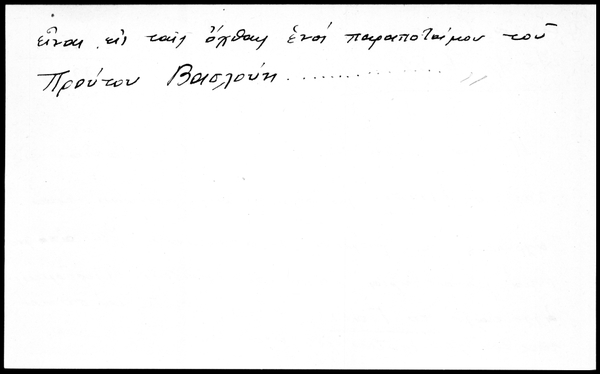 εἶναι εἰς ταῖς ὄχθαις ἑνός παραποτάμου τοῦ
Προύτου Βασλούη ..............»